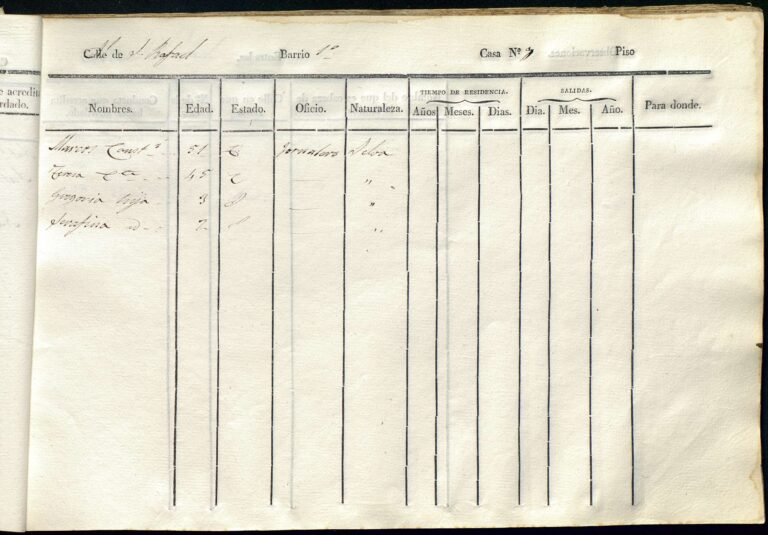 e acredita
rdado.
Calle de Sn. Rafael Barrio 1º Casa Nº Piso
Nombres. Edad. Estado. Oficio. Naturaleza. TIEMPO DE RESIDENCIA. SALIDAS. Para donde.
Años Meses. Dias. Dia. Mes. Año.
Marcos 51 C Jornalero Selva
45 C "
Gregoria hija S "
Serafina id S "